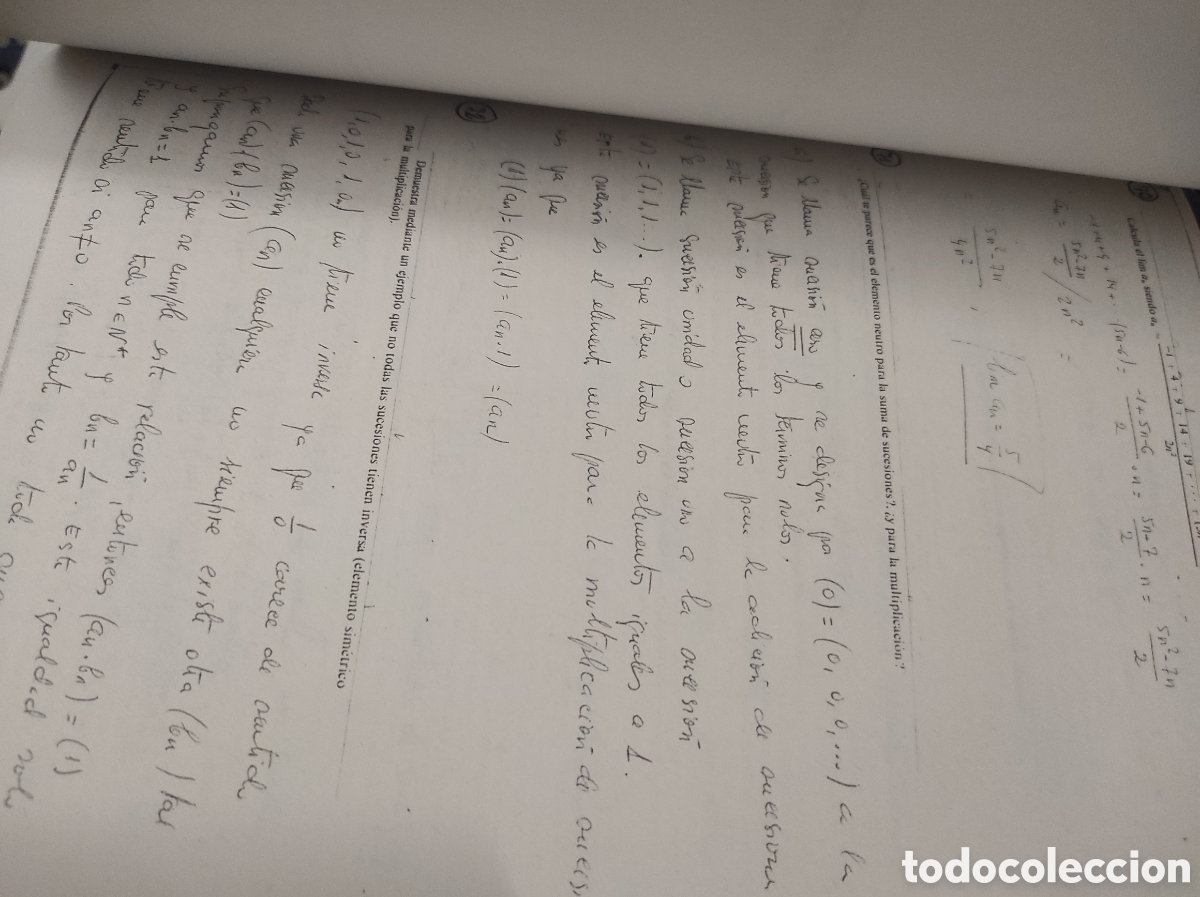 Calcula el lim aₙ siendo aₙ = −1 + 4 + 9 + 14 + 19 + ... +
2n²
−1+4+9+14+... (5n−6) = −1+5n−6 / 2 · n = 5n−7 / 2 · n = 5n²−7n / 2
aₙ = 5n²−7n / 2 / 2n² =
= 5n²−7n / 4n² , lim aₙ = 5/4
¿Cuál te parece que es el elemento neutro para la suma de sucesiones?. ¿Y para la multiplicación?
Se llama sucesión cero y se designa por (0) = (0, 0, 0, ...) a la
sucesión que tiene todos los términos nulos.
Este sucesión es el elemento neutro para la adición de sucesiones
b) Se llama sucesión unidad o sucesión uno a la sucesión
(1) = (1, 1, 1...). que tiene todos los elementos iguales a 1.
Este sucesión es el elemento neutro para la multiplicación de sucesi
ya que
(1)(an) = (an)·(1) = (an·1) = (an)
28
Demuestra mediante un ejemplo que no todas las sucesiones tienen inversa (elemento simétrico
para la multiplicación).
(1,0,1,0,1,0...) no tiene inversa ya que 1/0 carece de sentido
una sucesión (an) cualquiera no siempre existe otra (bn) tal
que (an)(bn) = (1)
supongamos que se cumple esta relación, entonces (an·bn) = (1)
y an·bn = 1 para todo n∈N* y bn = 1/an. Este igualdad solo
tiene sentido si an≠0. Por tanto no toda
todocoleccion